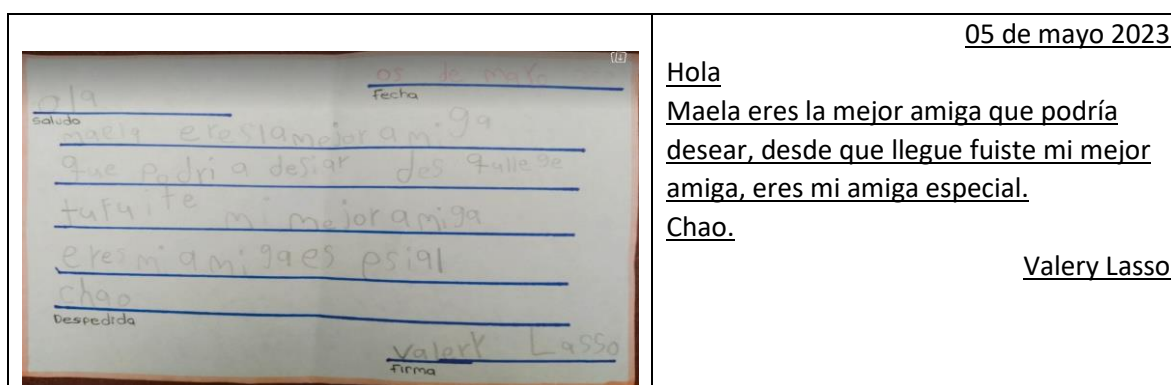 05 de mayo
fecha
ola
saludo
maela eres la mejor amiga
que podri a desiar des qullege
tufuite mi mejor amiga
eres mi amiga es psial
chao
Despedida
Valery Lasso
firma
05 de mayo 2023
Hola
Maela eres la mejor amiga que podría
desear, desde que llegue fuiste mi mejor
amiga, eres mi amiga especial.
Chao.
Valery Lasso